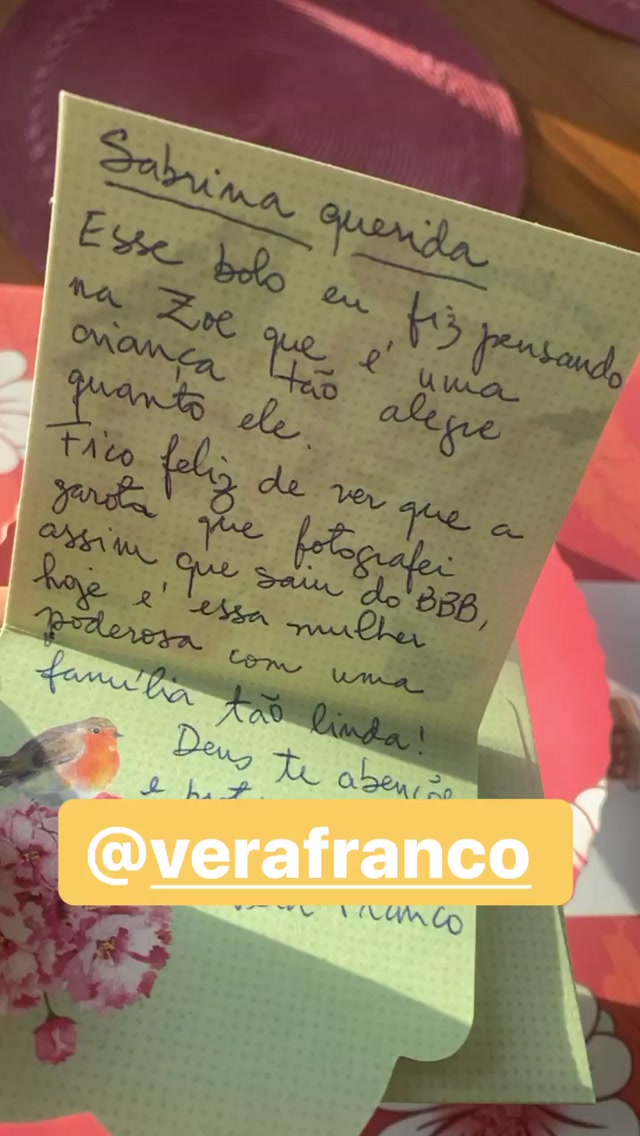 Sabrina querida
Esse bolo eu fiz pensando
na Zoe que é uma
criança tão alegre
quanto ele.
Fico feliz de ver que a
garota que fotografei
assim que saiu do BBB,
hoje é essa mulher
poderosa com uma
família tão linda!
Deus te abençõe
e
@verafranco
Vera Franco